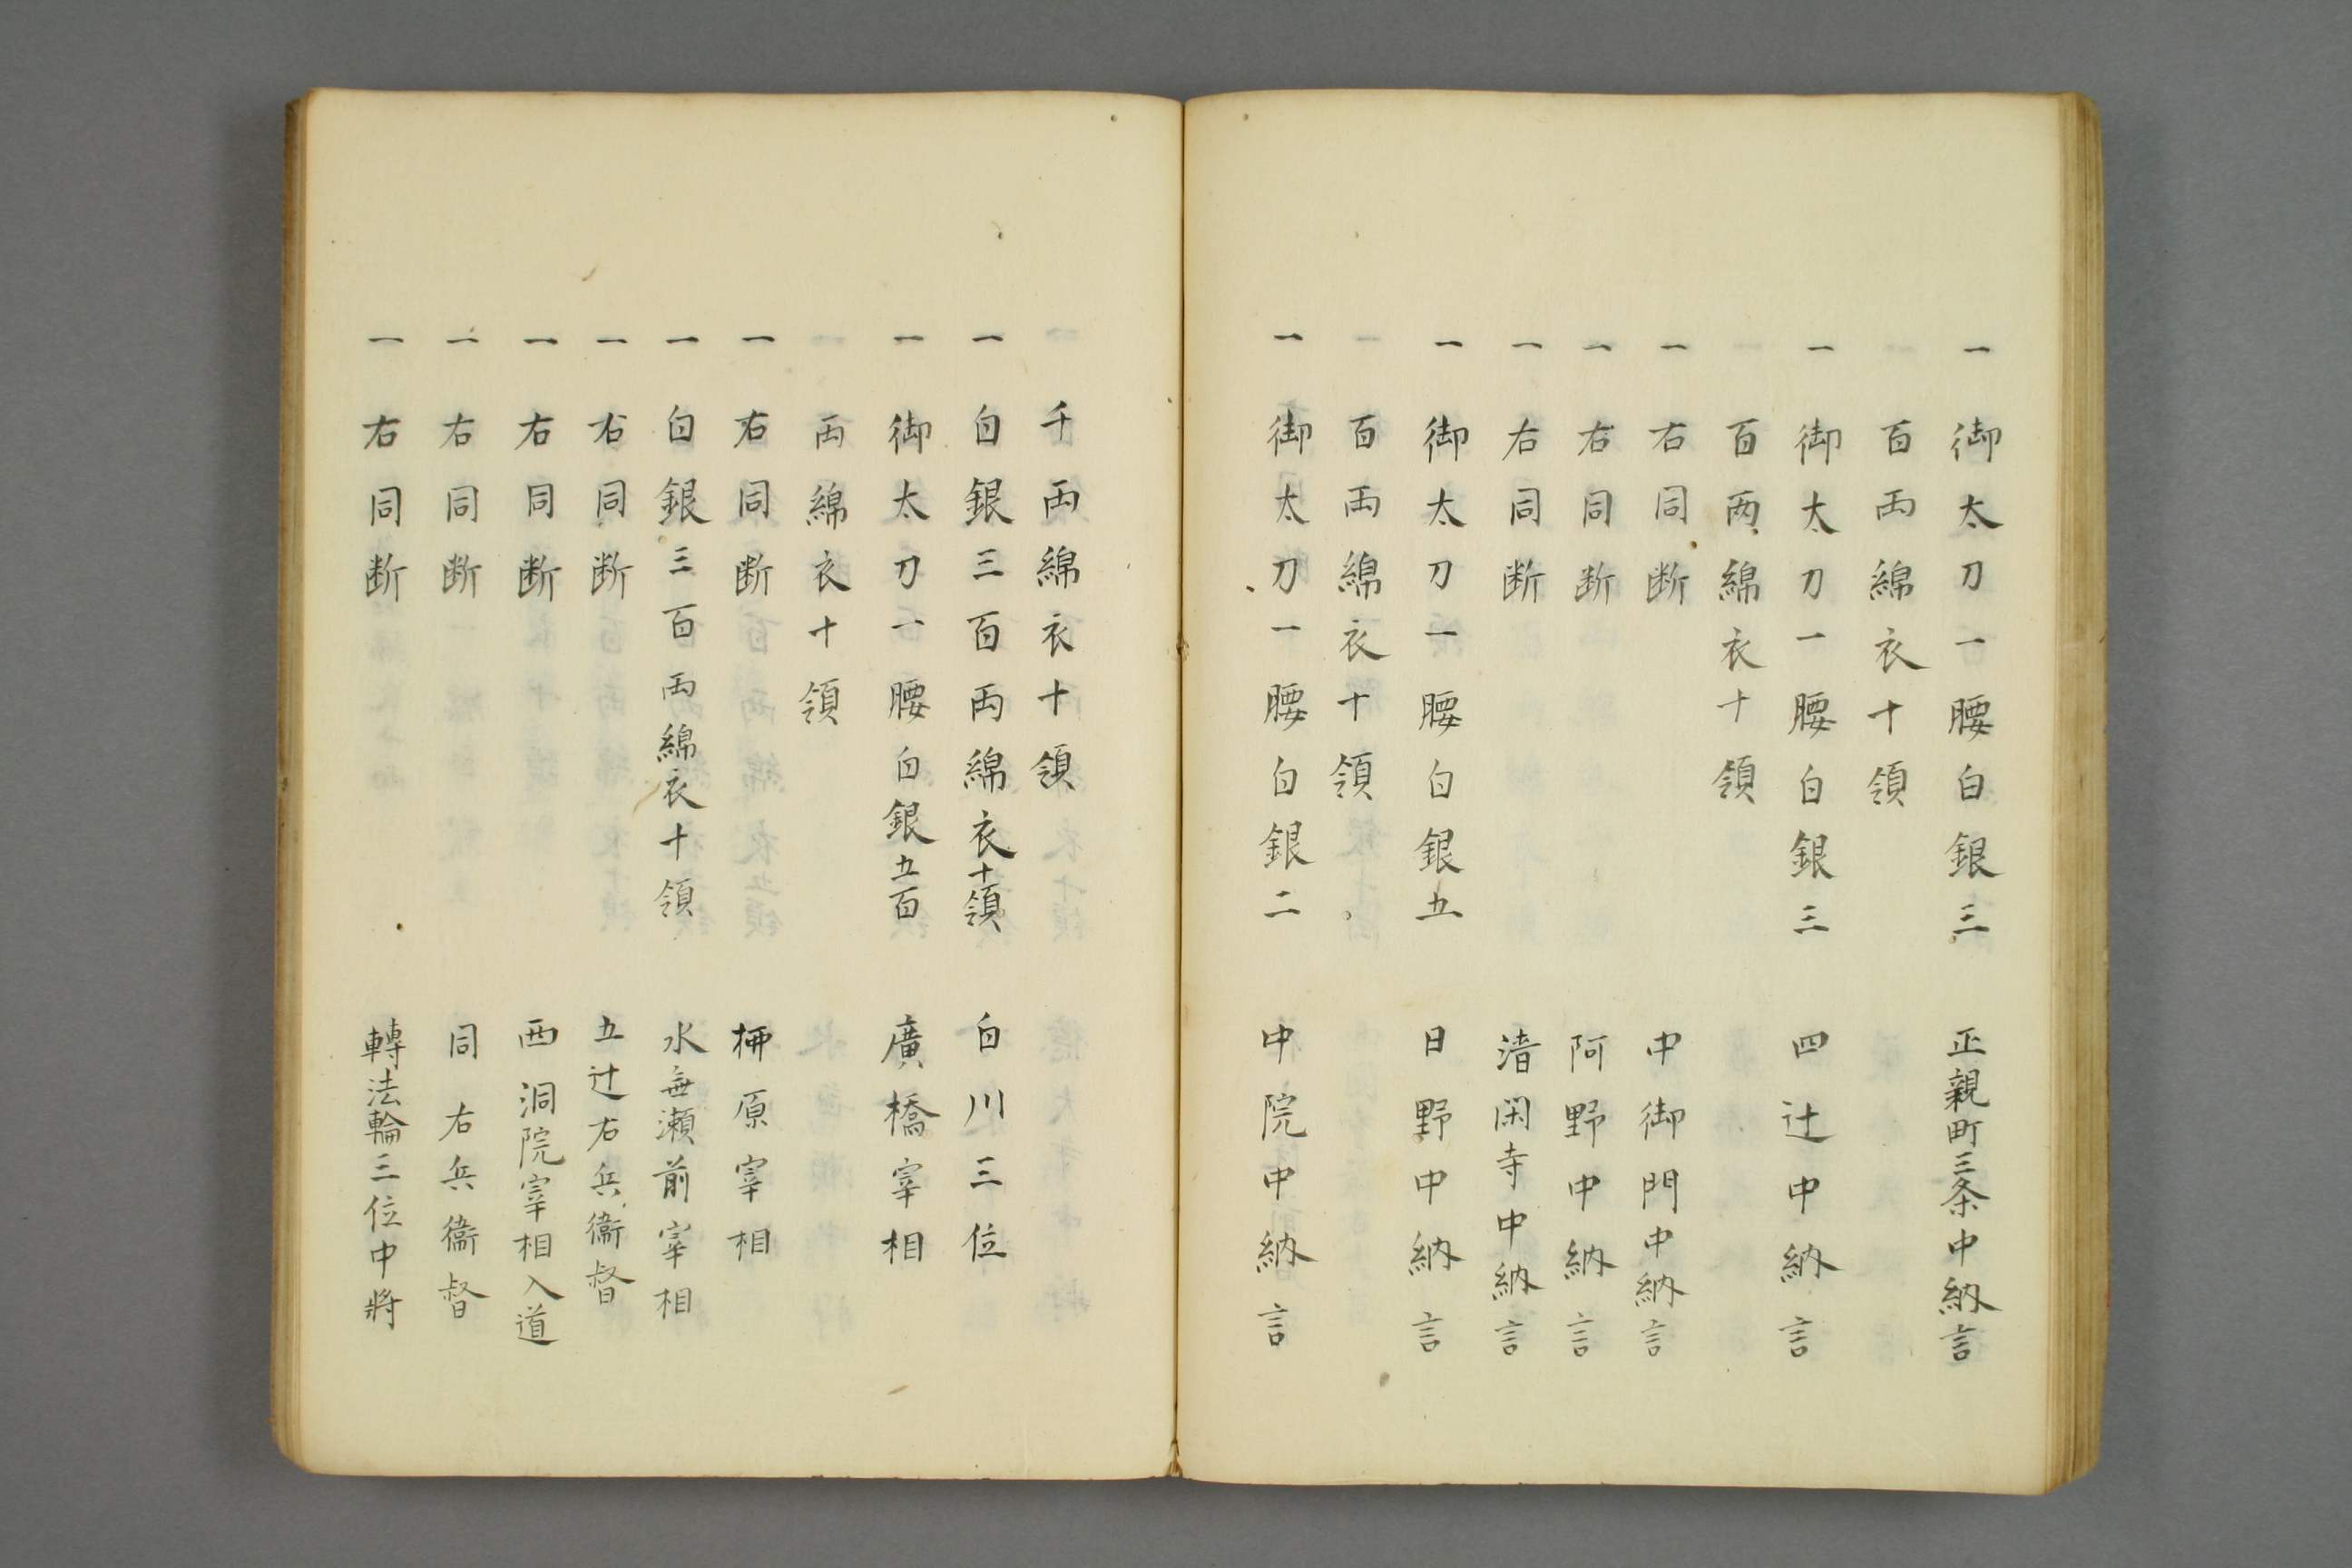 一 御太刀一腰白銀三 正親町三条中納言
百両綿衣十領
一 御太刀一腰白銀三 四辻中納言
百両綿衣十領
一 右同断 中御門中納言
一 右同断 阿野中納言
一 右同断 清閑寺中納言
一 御太刀一腰白銀五 日野中納言
百両綿衣十領
一 御太刀一腰白銀二 中院中納言
千両綿衣十領
一 白銀三百両綿衣十領 白川三位
一 御太刀一腰白銀五百 廣橋宰相
両綿衣十領
一 右同断 柳原宰相
一 白銀三百両綿衣十領 水無瀬前宰相
一 右同断 五辻右兵衞督
一 右同断 西洞院宰相入道
一 右同断 同右兵衞督
一 右同断 轉法輪三位中將